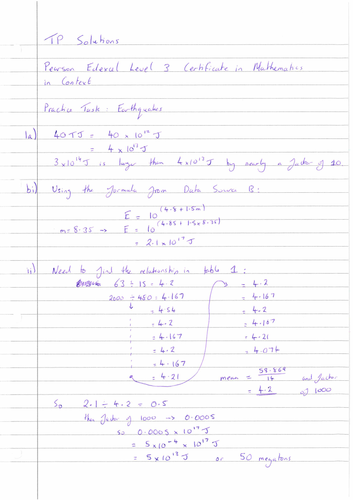 TP Solutions
Pearson Edexcel Level 3 Certificate in Mathematics
in Context
Practice Task: Earthquakes
1a) 40 TJ = 40 x 10¹² J
= 4 x 10¹³ J
3 x 10¹⁴ J is larger than 4 x 10¹³ J by nearly a factor of 10
bi) Using the formula from Data Source B:
E = 10^(4.8 + 1.5m)
m = 8.35 → E = 10^(4.85 + 1.5 x 8.35)
= 2.1 x 10¹⁷ J
ii) Need to find the relationship in table 1:
63 ÷ 15 = 4.2 = 4.2
2000 ÷ 480 = 4.167 = 4.167
= 4.54 = 4.2
= 4.2 = 4.187
= 4.167 = 4.21
= 4.2 = 4.076
= 4.167
= 4.21
mean = 58.869 / 14 and factor
= 4.2 of 1000
So 2.1 ÷ 4.2 = 0.5
then factor of 1000 → 0.0005
So 0.0005 x 10¹⁷ J
= 5 x 10⁻⁴ x 10¹⁷ J
= 5 x 10¹³ J or 50 megatons